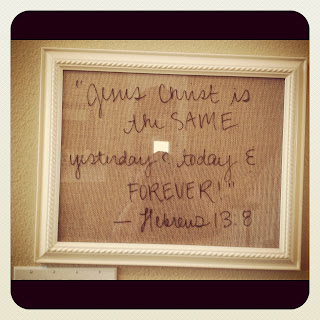 "Jesus Christ is
the SAME
yesterday & today &
FOREVER!"
— Hebrews 13:8